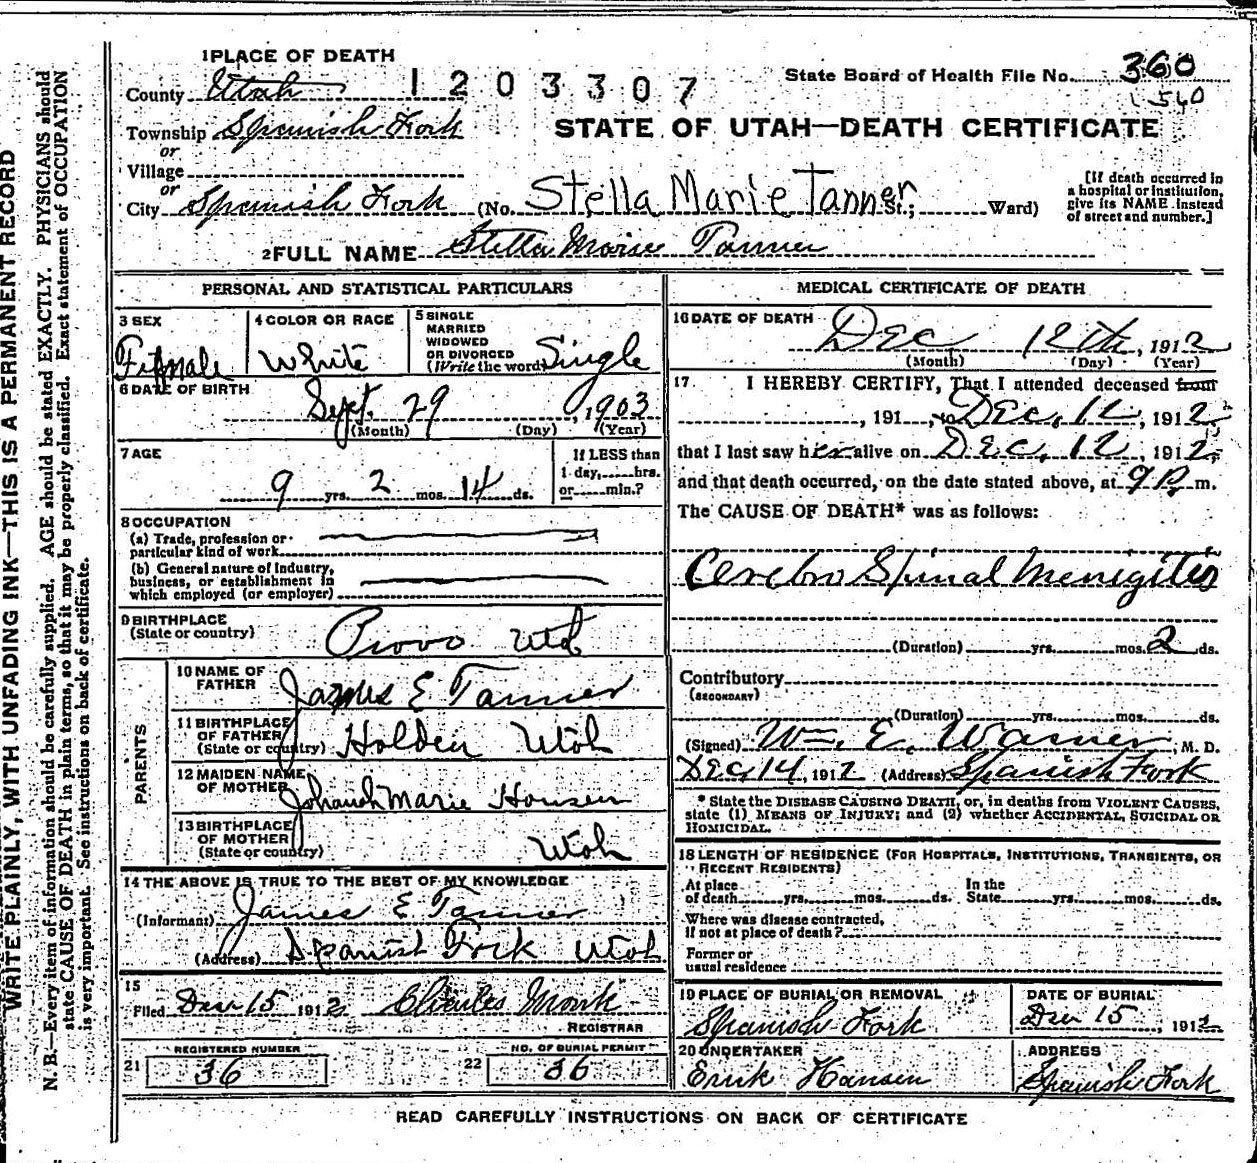 1 PLACE OF DEATH
County Utah
1203307
State Board of Health File No. 360
1540
Township Spanish Fork
STATE OF UTAH—DEATH CERTIFICATE
or
Village
or
City Spanish Fork (No. Stella Marie Tanner St.; Ward)
[If death occurred in
a hospital or institution,
give its NAME instead
of street and number.]
2 FULL NAME Stella Marie Tanner
PERSONAL AND STATISTICAL PARTICULARS
3 SEX Female
4 COLOR OR RACE White
5 SINGLE
MARRIED
WIDOWED
OR DIVORCED
(Write the word) Single
6 DATE OF BIRTH
Sept. 29, 1903
(Month) (Day) (Year)
7 AGE
9 yrs. 2 mos. 14 ds.
If LESS than
1 day, hrs.
or min.?
8 OCCUPATION
(a) Trade, profession or
particular kind of work
(b) General nature of industry,
business, or establishment in
which employed (or employer)
9 BIRTHPLACE
(State or country) Provo Utah
PARENTS
10 NAME OF
FATHER James E Tanner
11 BIRTHPLACE
OF FATHER
(State or country) Holden Utah
12 MAIDEN NAME
OF MOTHER Johanah Marie Hansen
13 BIRTHPLACE
OF MOTHER
(State or country) Utah
14 THE ABOVE IS TRUE TO THE BEST OF MY KNOWLEDGE
(Informant) James E Tanner
(Address) Spanish Fork Utah
15
Filed Dec 15 1912 Charles Monk
REGISTRAR
21 REGISTERED NUMBER
36
22 NO. OF BURIAL PERMIT
36
MEDICAL CERTIFICATE OF DEATH
16 DATE OF DEATH
Dec 12th, 1912
(Month) (Day) (Year)
17. I HEREBY CERTIFY, That I attended deceased from
, 191 , to Dec. 12, 1912
that I last saw her alive on Dec. 12, 1912,
and that death occurred, on the date stated above, at 9 P. m.
The CAUSE OF DEATH* was as follows:
Cerebro Spinal Menigitis
(Duration) yrs. mos. 2 ds.
Contributory
(SECONDARY)
(Duration) yrs. mos. ds.
(Signed) Wm. E. Warner, M. D.
Dec. 14, 1912 (Address) Spanish Fork
* State the DISEASE CAUSING DEATH, or, in deaths from VIOLENT CAUSES,
state (1) MEANS OF INJURY; and (2) whether ACCIDENTAL, SUICIDAL OR
HOMICIDAL.
18 LENGTH OF RESIDENCE (FOR HOSPITALS, INSTITUTIONS, TRANSIENTS, OR
RECENT RESIDENTS)
At place
of death yrs. mos. ds.
In the
State yrs. mos. ds.
Where was disease contracted,
If not at place of death?
Former or
usual residence
19 PLACE OF BURIAL OR REMOVAL
Spanish Fork
DATE OF BURIAL
Dec 15, 1912
20 UNDERTAKER
Erick Hansen
ADDRESS
Spanish Fork
READ CAREFULLY INSTRUCTIONS ON BACK OF CERTIFICATE
WRITE PLAINLY, WITH UNFADING INK—THIS IS A PERMANENT RECORD
N. B.—Every item of information should be carefully supplied. AGE should be stated EXACTLY. PHYSICIANS should
state CAUSE OF DEATH in plain terms, so that it may be properly classified. Exact statement of OCCUPATION
is very important. See instructions on back of certificate.